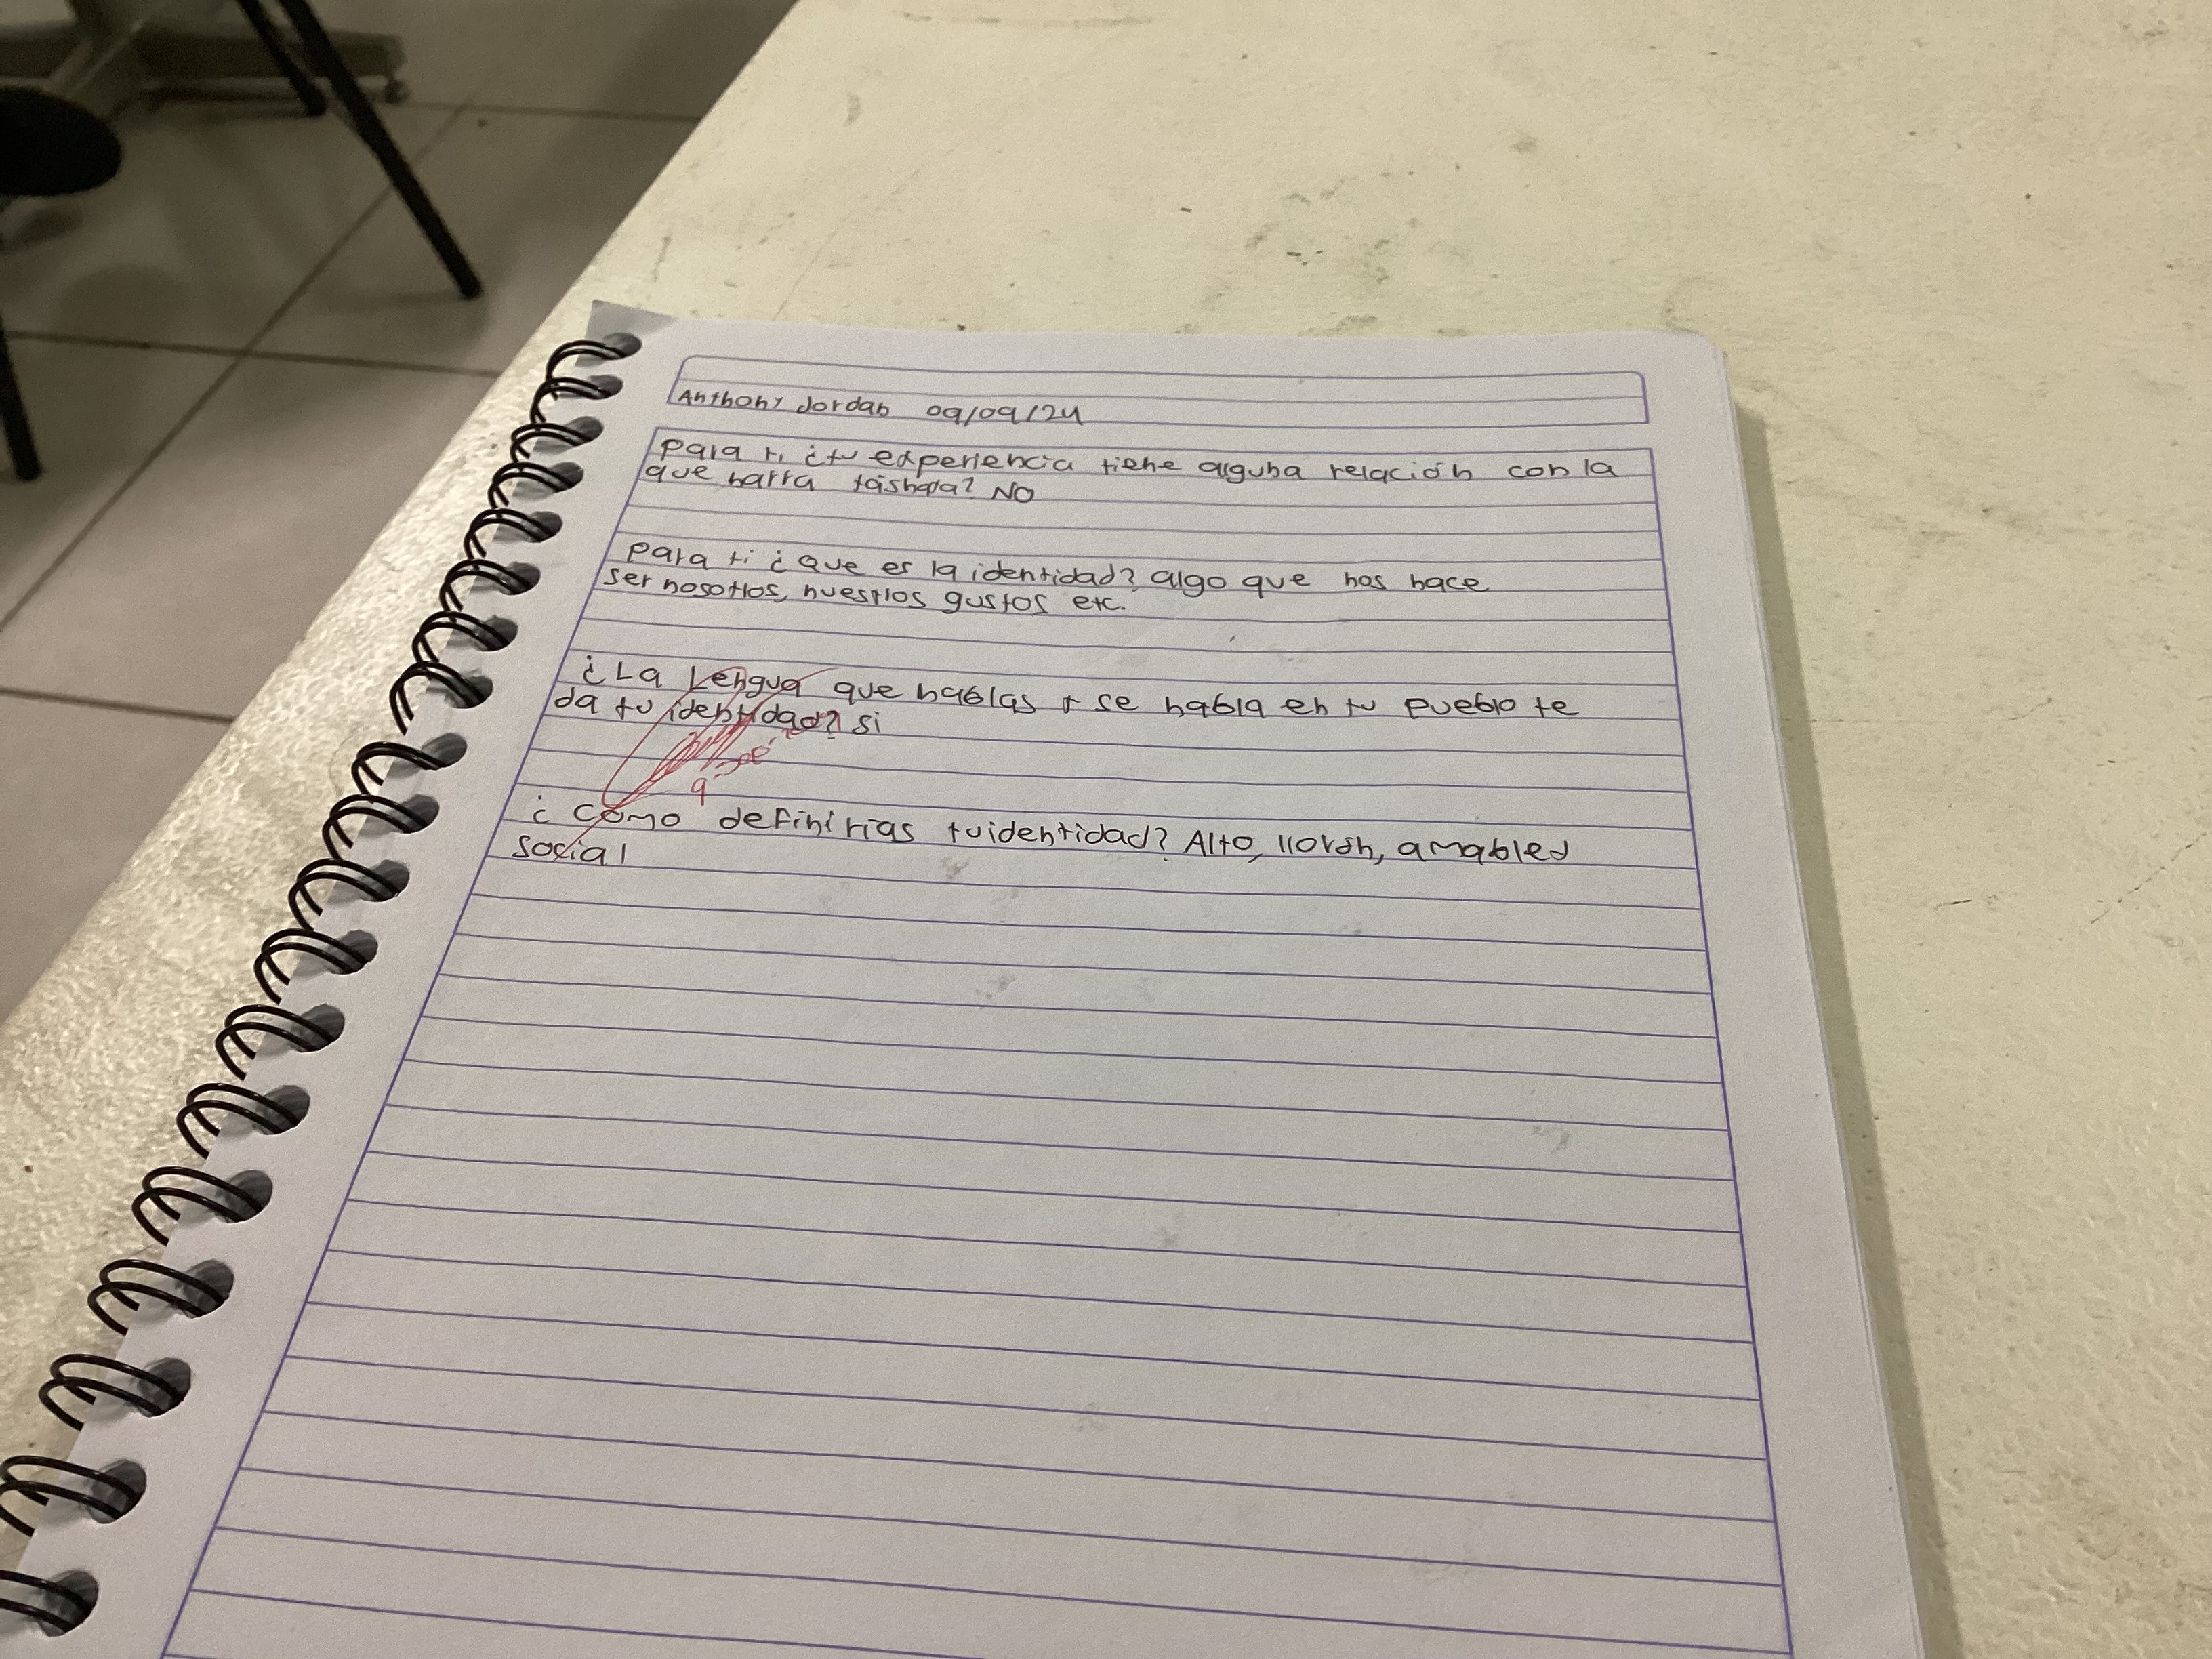 Anthony Jordan 09/09/24
Para ti ¿tu experiencia tiene alguna relación con la
que narra ? NO
para ti ¿Que es la identidad? algo que nos hace
ser nosotros, nuestros gustos etc.
¿La Lengua que hablas y se habla en tu pueblo te
da tu identidad? si
¿Como definirias tu identidad? Alto, llorón, amable
social